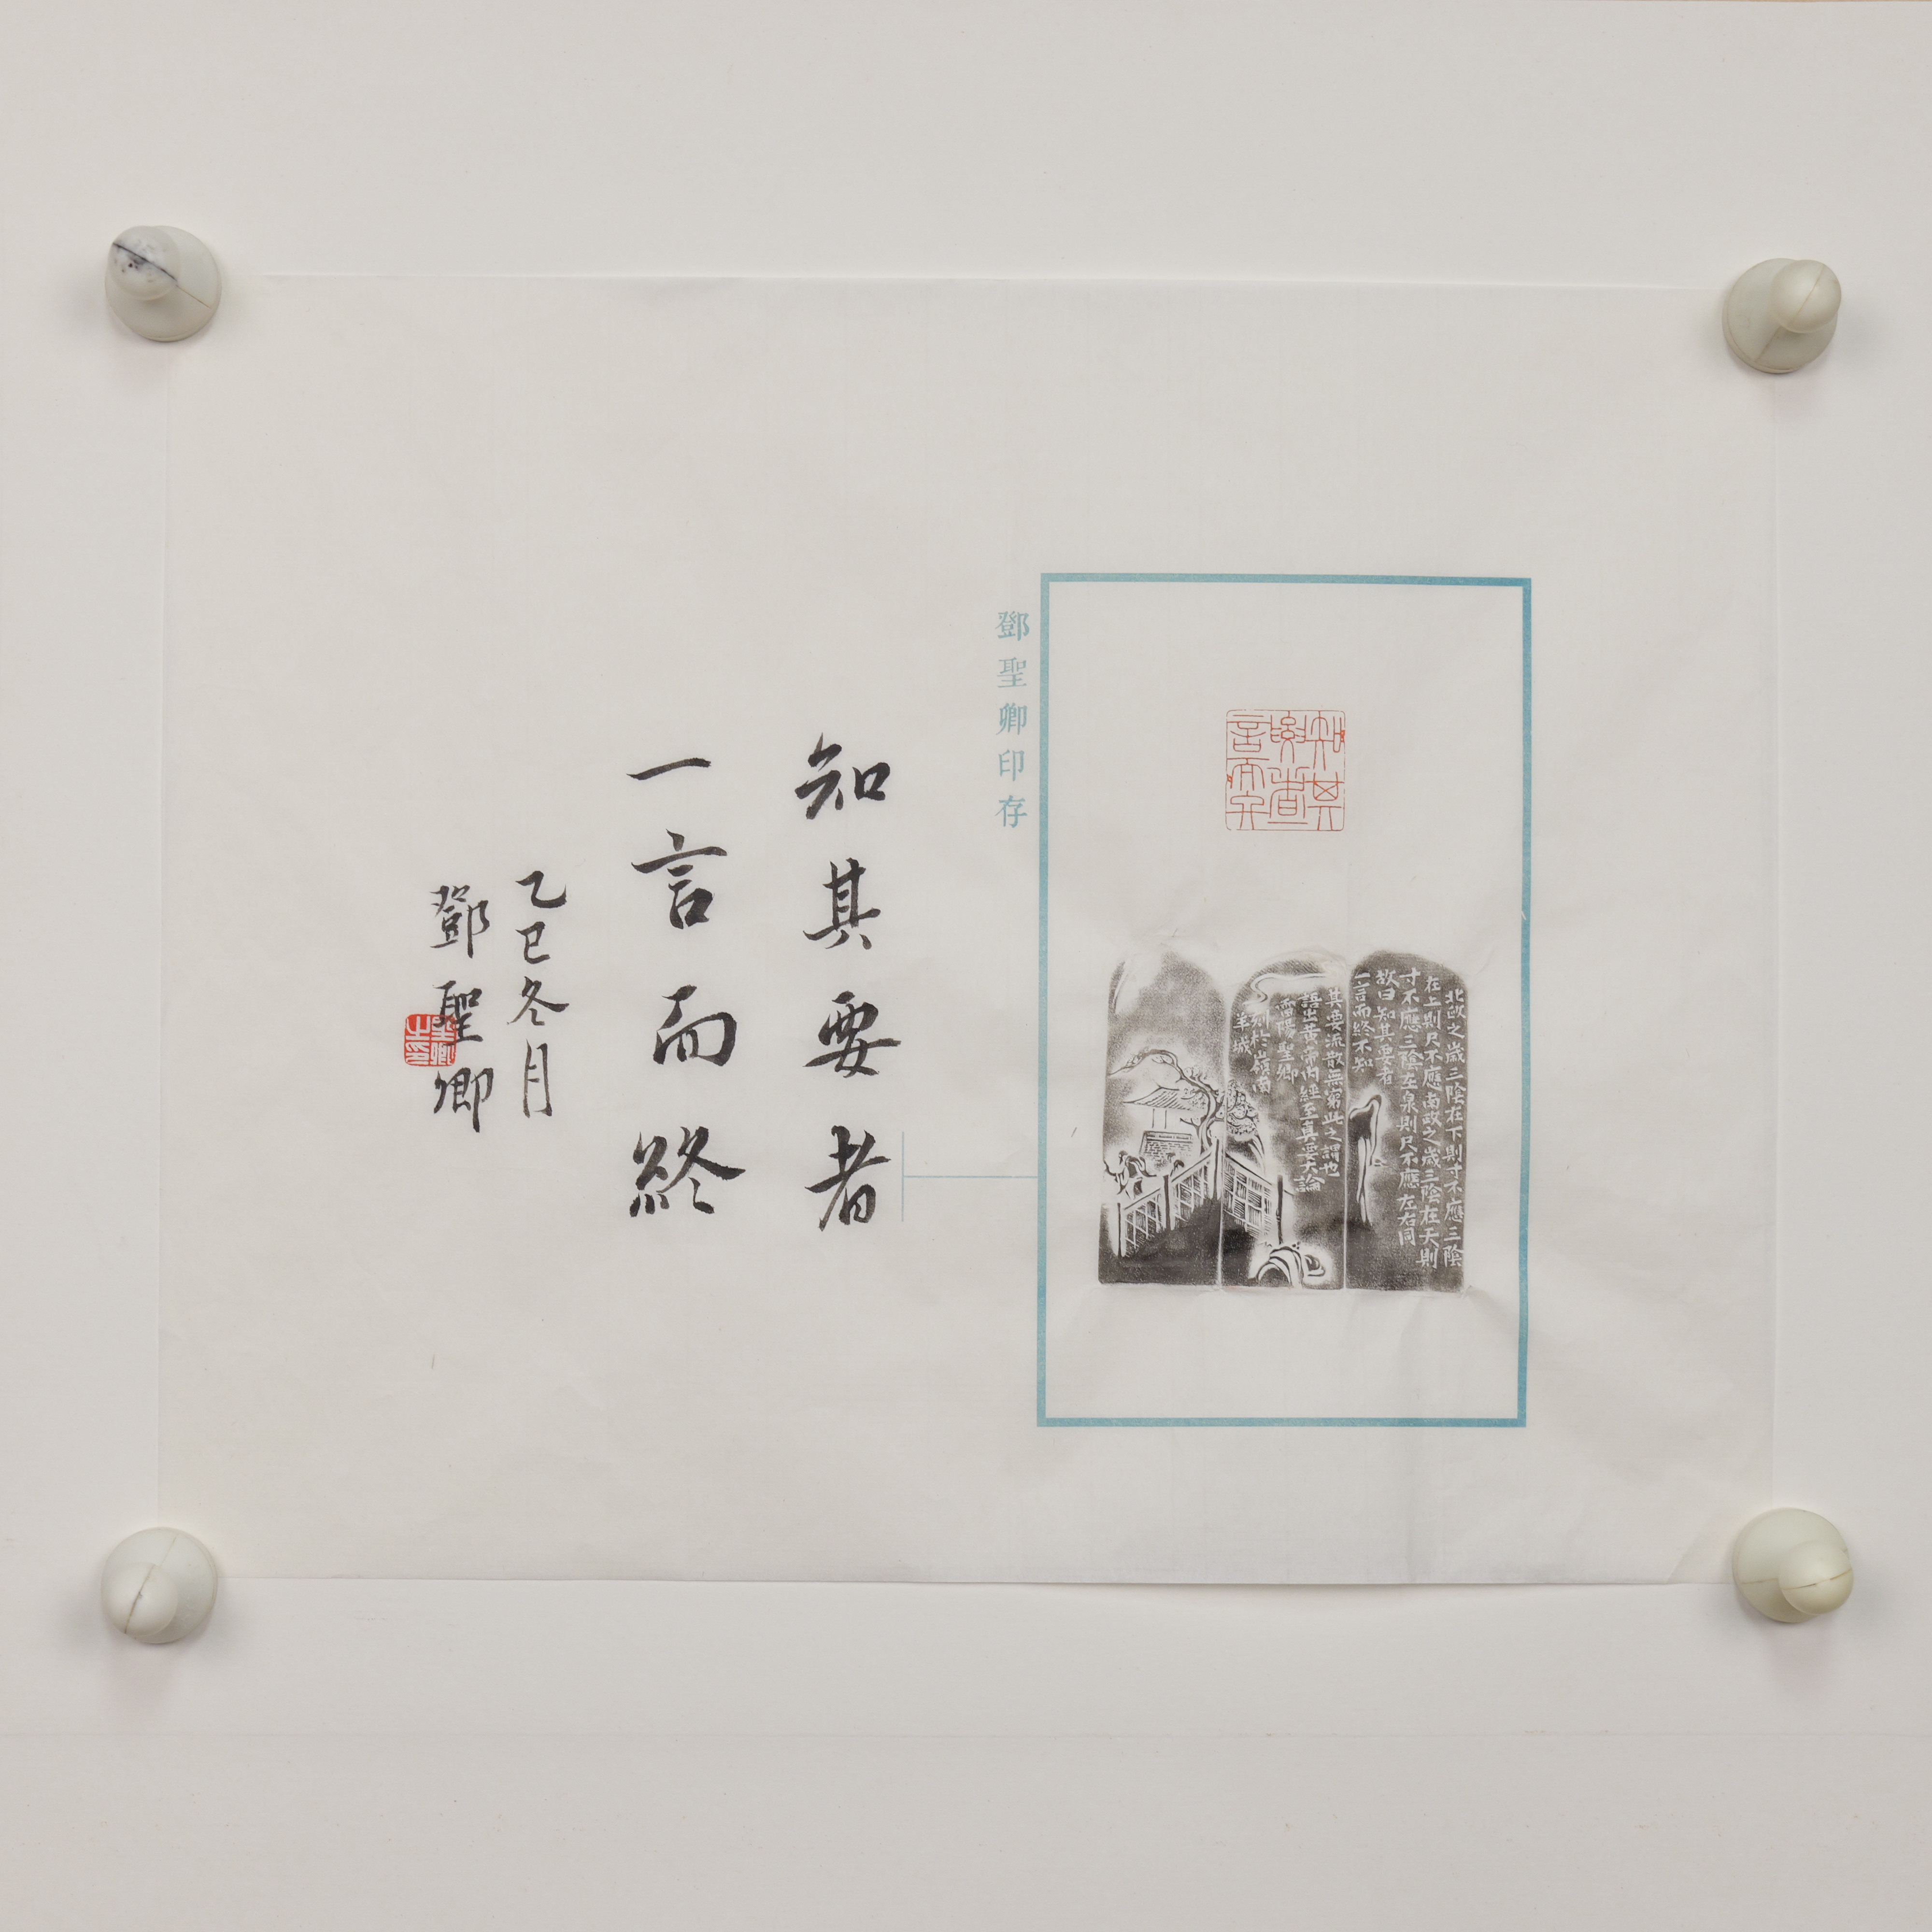 知其
要者一
言而終
北政之歲三陰在下則寸不應三陰
在上則尺不應南政之歲三陰在天則
寸不應三陰在泉則尺不應左右同
故曰知其要者
一言而終不知
其要流散無窮此之謂也
語出黃帝內經至真要大論
雷陽聖卿
刻於嶺南
羊城
鄧聖卿印存
知其要者
一言而終
乙巳冬月
鄧聖卿
聖卿
之印